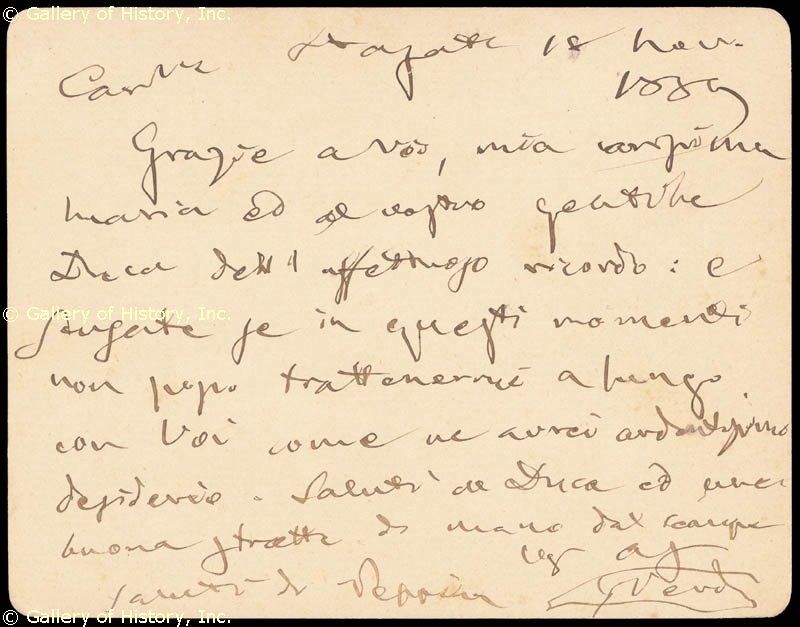 © Gallery of History, Inc.
S Agata 18 Nov.
1889
Grazie a Voi, mia carissima
Maria ed al vostro gentile
Duca dell'affettuoso ricordo: e
scusate se in questi momenti
© Gallery of History, Inc.
non posso trattenermi a lungo
con Voi come ne avrei ardentissimo
desiderio. Saluti al Duca ed una
buona stretta di mano dal sempre
aff
saluti di Peppina GVerdi
© Gallery of History, Inc.